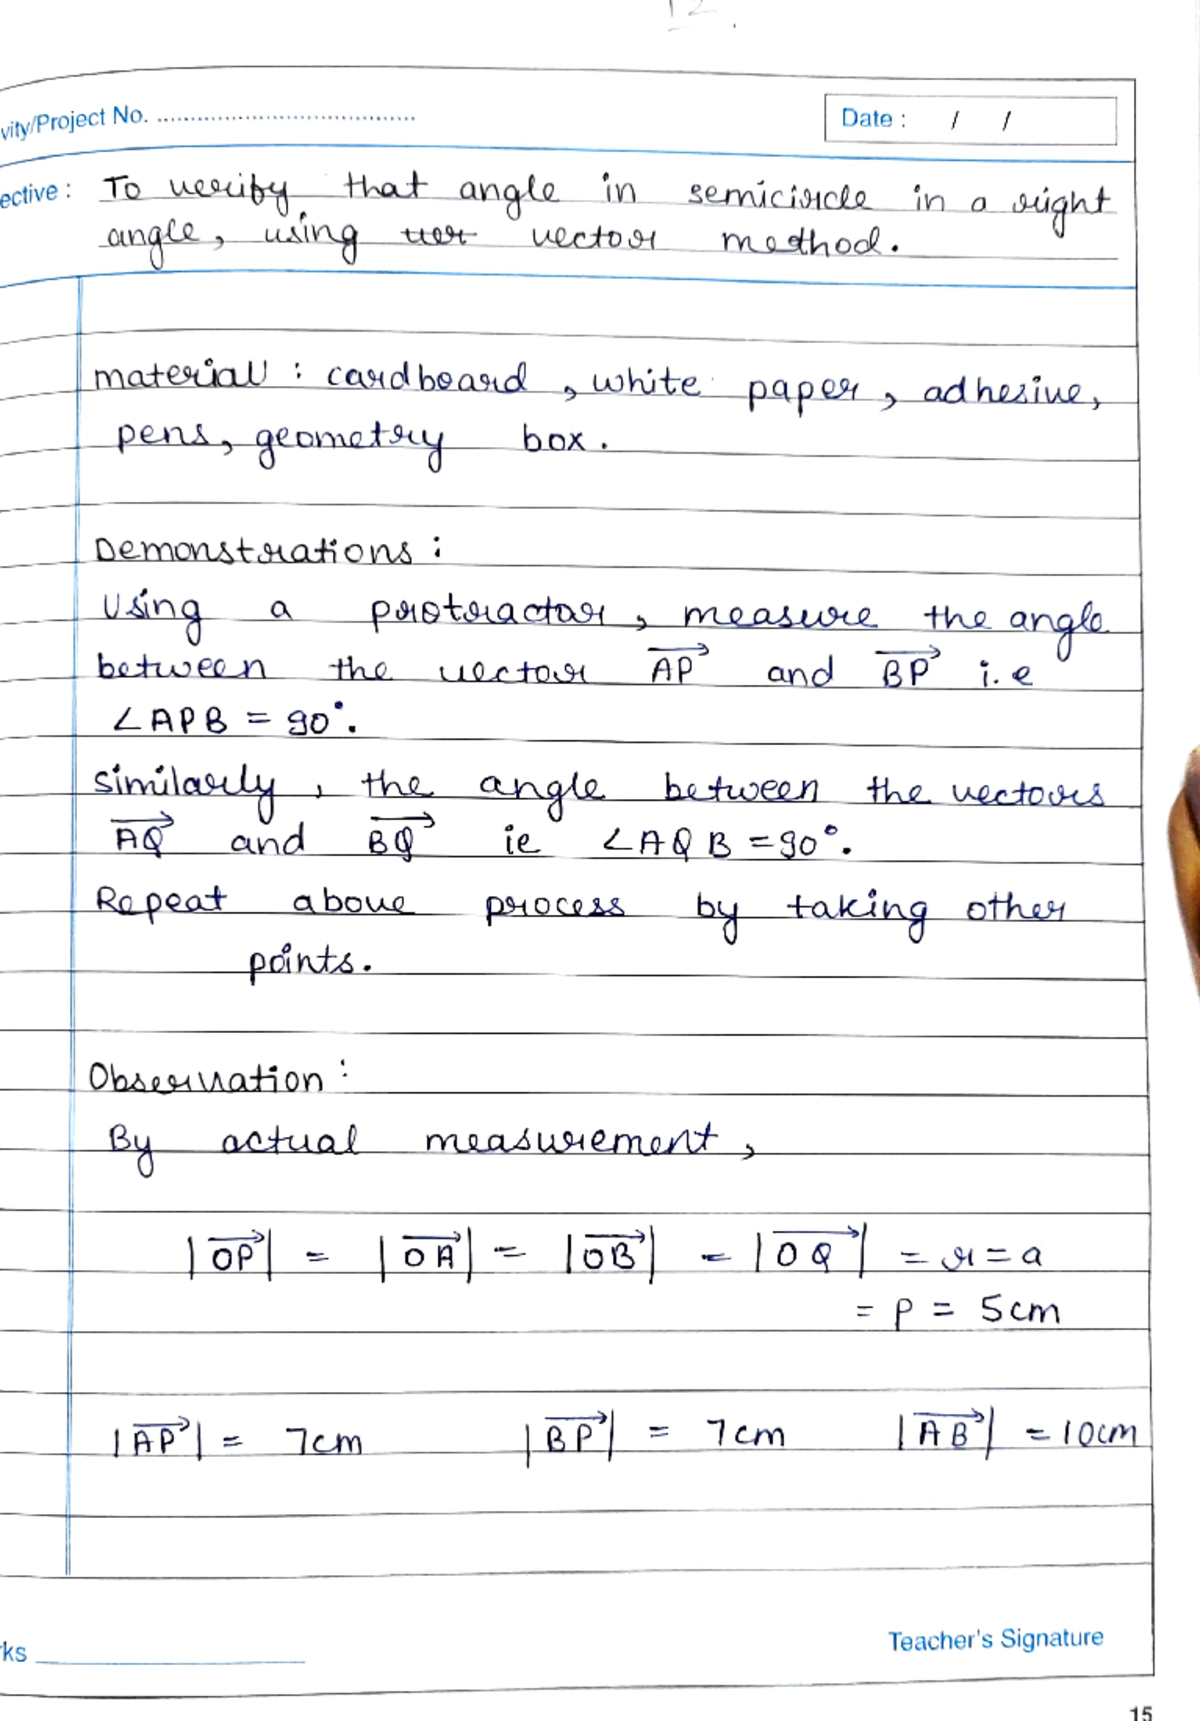 12
vity/Project No. ......................................
Date : / /
ective : To verify that angle in semicircle in a right
angle, using ver vector method.
material : cardboard , white paper , adhesive,
pens, geometry box .
Demonstrations :
Using a protractor , measure the angle
between the vector AP and BP i.e
∠APB = 90°.
Similarly , the angle between the vectors
AQ and BQ ie ∠AQB = 90°.
Repeat above process by taking other
points.
Observation :
By actual measurement ,
|OP| = |OA| = |OB| = |OQ| = r = a
= p = 5cm
|AP| = 7cm |BP| = 7cm |AB| = 10cm
rks
Teacher's Signature
15